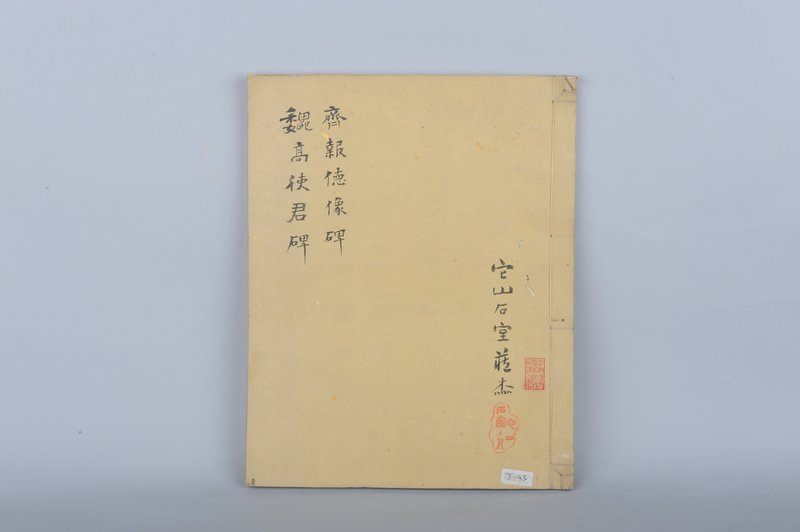 齊報德像碑
魏高使君碑
它山石室藏本